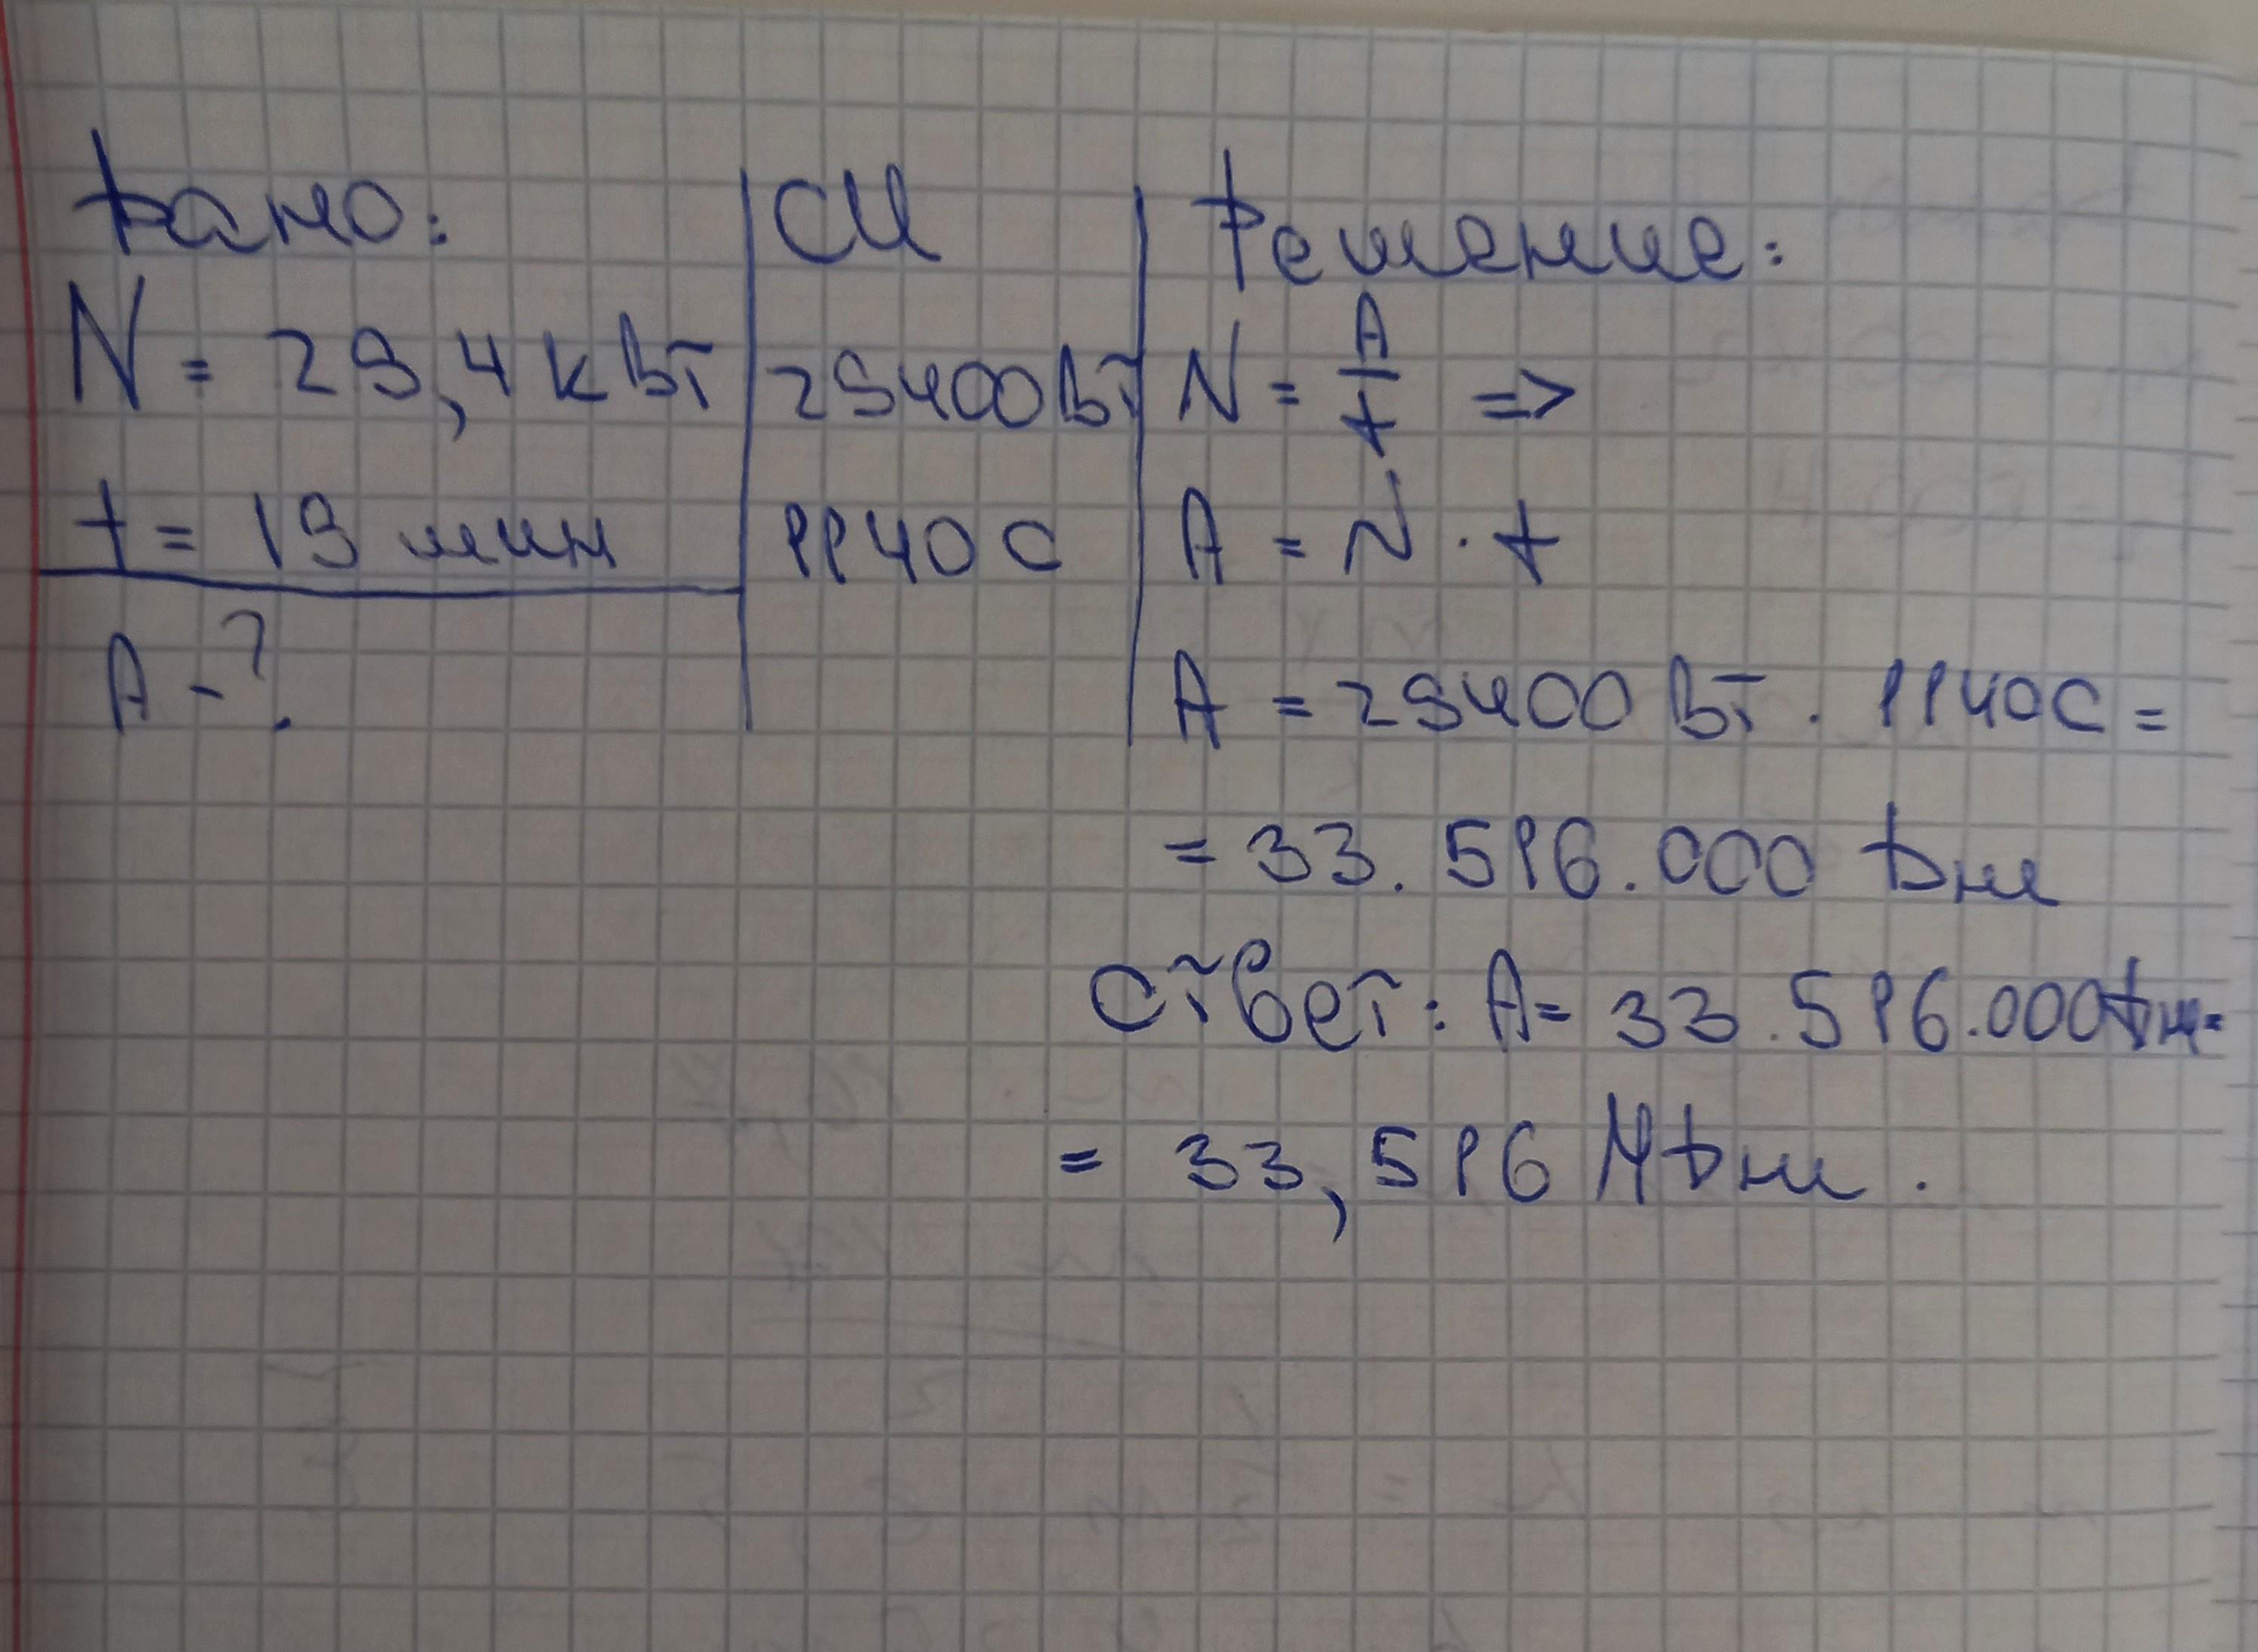 Дано:
N = 29,4 кВт
t = 19 мин
A - ?
СИ
29400 Вт
1140 с
Решение:
N = A/t =>
A = N · t
A = 29400 Вт · 1140 с =
= 33.516.000 Дж
Ответ: A = 33.516.000 Дж =
= 33,516 МДж.